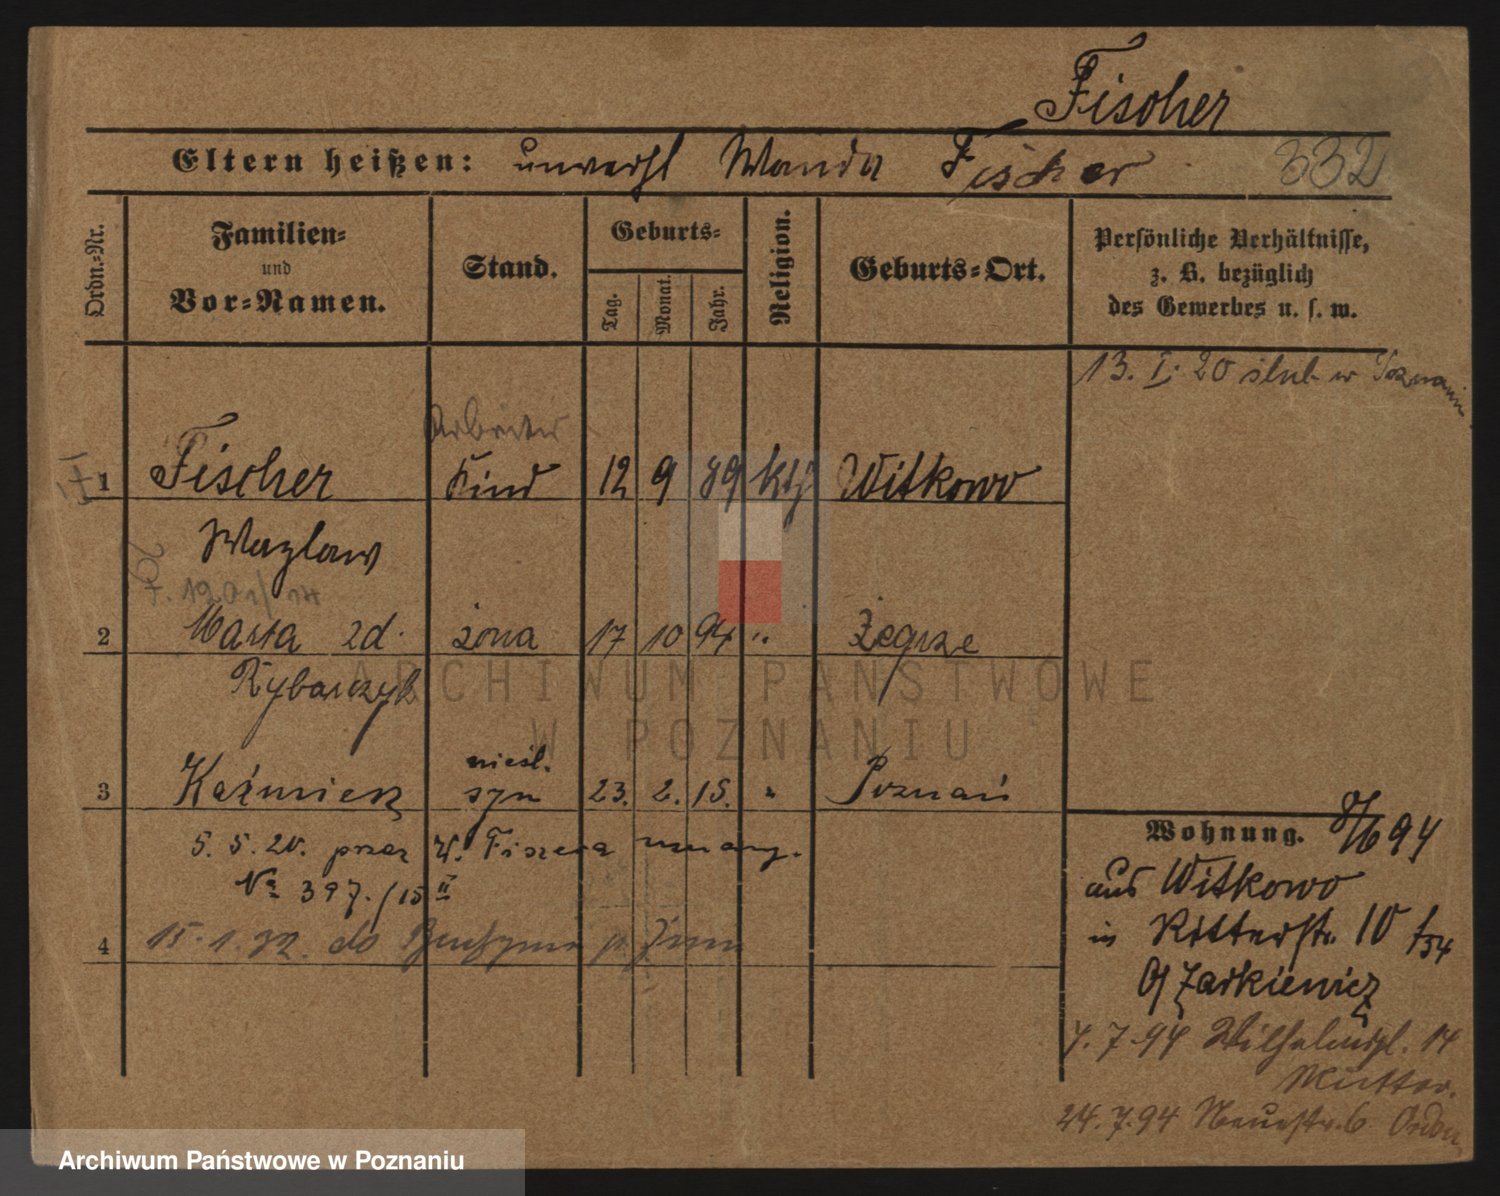 Fischer
Eltern heißen: unverehl Wanda Fischer
332
Ordn.-Nr.
Familien-
und
Vor-Namen.
Stand.
Geburts-
Tag.
Monat.
Jahr.
Religion.
Geburts-Ort.
Persönliche Verhältnisse,
z. B. bezüglich
des Gewerbes u. s. w.
13. I. 20 ślub w Poznaniu
Arbeiter
1 Fischer Kind 12 9 89 kth Witkowo
Wazlaw
2 Marta zd. żona 17 10 94 " Żegrze
Rybarczyk
nieśl.
3 Kaźmierz syn 23. 2. 15. " Poznań
5. 5. 20. przez W. Fiszera uznany.
No 397./15 II
4 15. 1. 22. do
Wohnung. 8/6 94
aus Witkowo
in Ritterstr. 10
Zarkiewicz
4. 7. 94 Wilhelmspl. 14
Mutter.
24. 7. 94 Neuestr. 6
ARCHIWUM PAŃSTWOWE
W POZNANIU
Archiwum Państwowe w Poznaniu